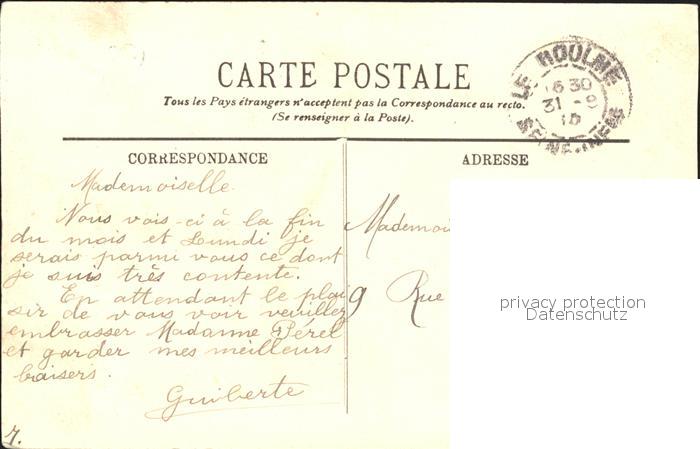 CARTE POSTALE
Tous les Pays étrangers n'acceptent pas la Correspondance au recto.
(Se renseigner à la Poste).
LE HOULME
16 30
31 - 8
10
SEINE-INFRE
CORRESPONDANCE
Mademoiselle
Nous vois-ci à la fin
du mois et Lundi je
serais parmi vous ce dont
je suis très contente.
En attendant le plai
sir de vous voir veuillez
embrasser Madame Pérel
et garder mes meilleurs
baisers.
Guiberte
7.
ADRESSE
Mademoi
9 Rue
privacy protection
Datenschutz